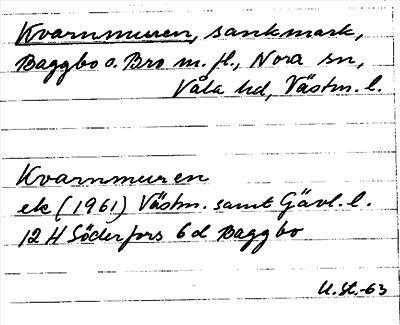 Kvarnmuren, sankmark,
Baggbo o. Bro m. fl., Nora sn,
Våla hd, Västm. l.
Kvarnmuren
ek (1961) Västm. samt Gävl. l.
12 H Söderfors 6 d Baggbo
U. St.-63